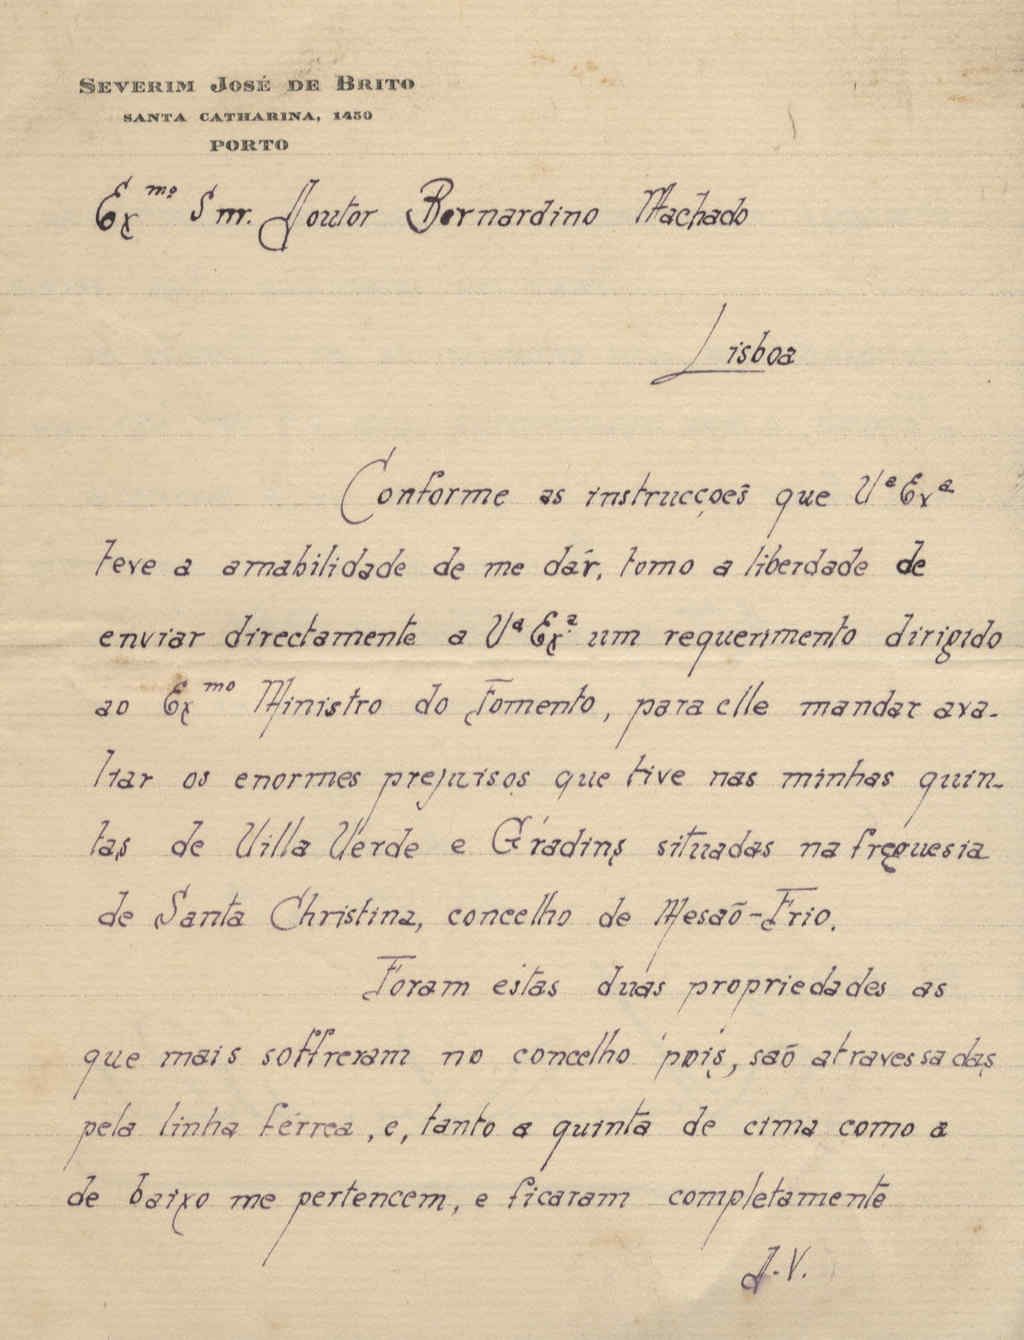 SEVERIM JOSÉ DE BRITO
SANTA CATHARINA, 1450
PORTO
Ex.mo Snr. Doutor Bernardino Machado
Lisboa
Conforme as instrucções que V.a Ex.a
teve a amabilidade de me dár, tomo a liberdade de
enviar directamente a V.a Ex.a um requerimento dirigido
ao Ex.mo Ministro do Fomento, para elle mandar ava-
liar os enormes prejuisos que tive nas minhas quin-
tas de Villa Verde e Gradins situadas na freguesia
de Santa Christina, concelho de Mesão-Frio.
Foram estas duas propriedades as
que mais soffreram no concelho pois, são atravessadas
pela linha férrea, e, tanto a quinta de cima como a
de baixo me pertencem, e ficaram completamente